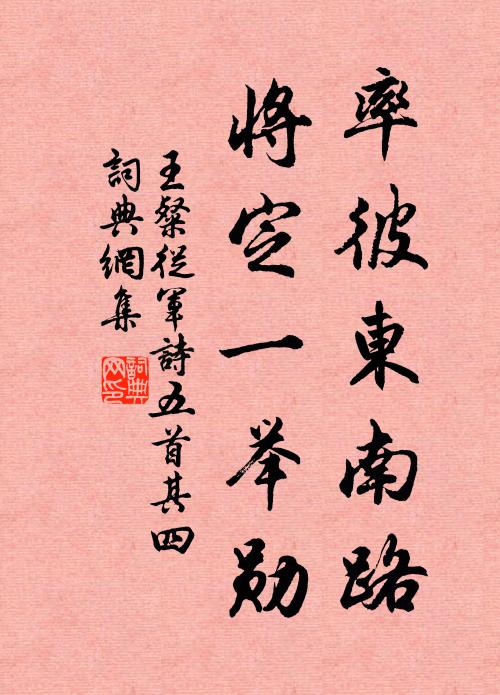 率彼東南路
將定一举勛
王粲從軍詩五首其四
詞典網集
詞典
网印